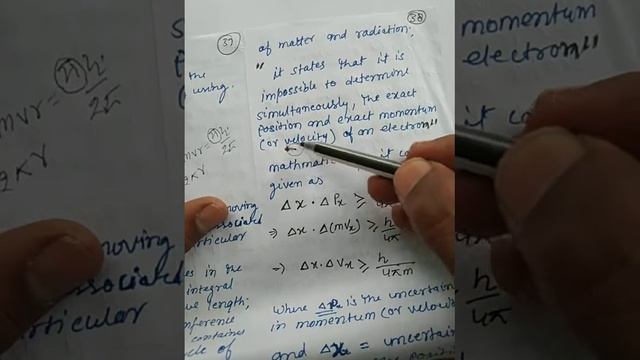 37
38
of matter and radiation;
" it states that it is
impossible to determine
simultaneously, the exact
position and exact momentum
(or velocity) of an electron"
mathmatic
given as
Δx . ΔPx ≥
⇒ Δx . Δ(mVx) ≥ h/4π
⇒ Δx . ΔVx ≥ h/4πm
where ΔPx is the uncertain
in momentum (or velocity
and Δx = uncertain
the
using.
mvr = nh/2π
2πr
moving
associated
articular
es in the
integral
ve length;
nference
contains
cle of
momentum
electron"
it co
h/4π